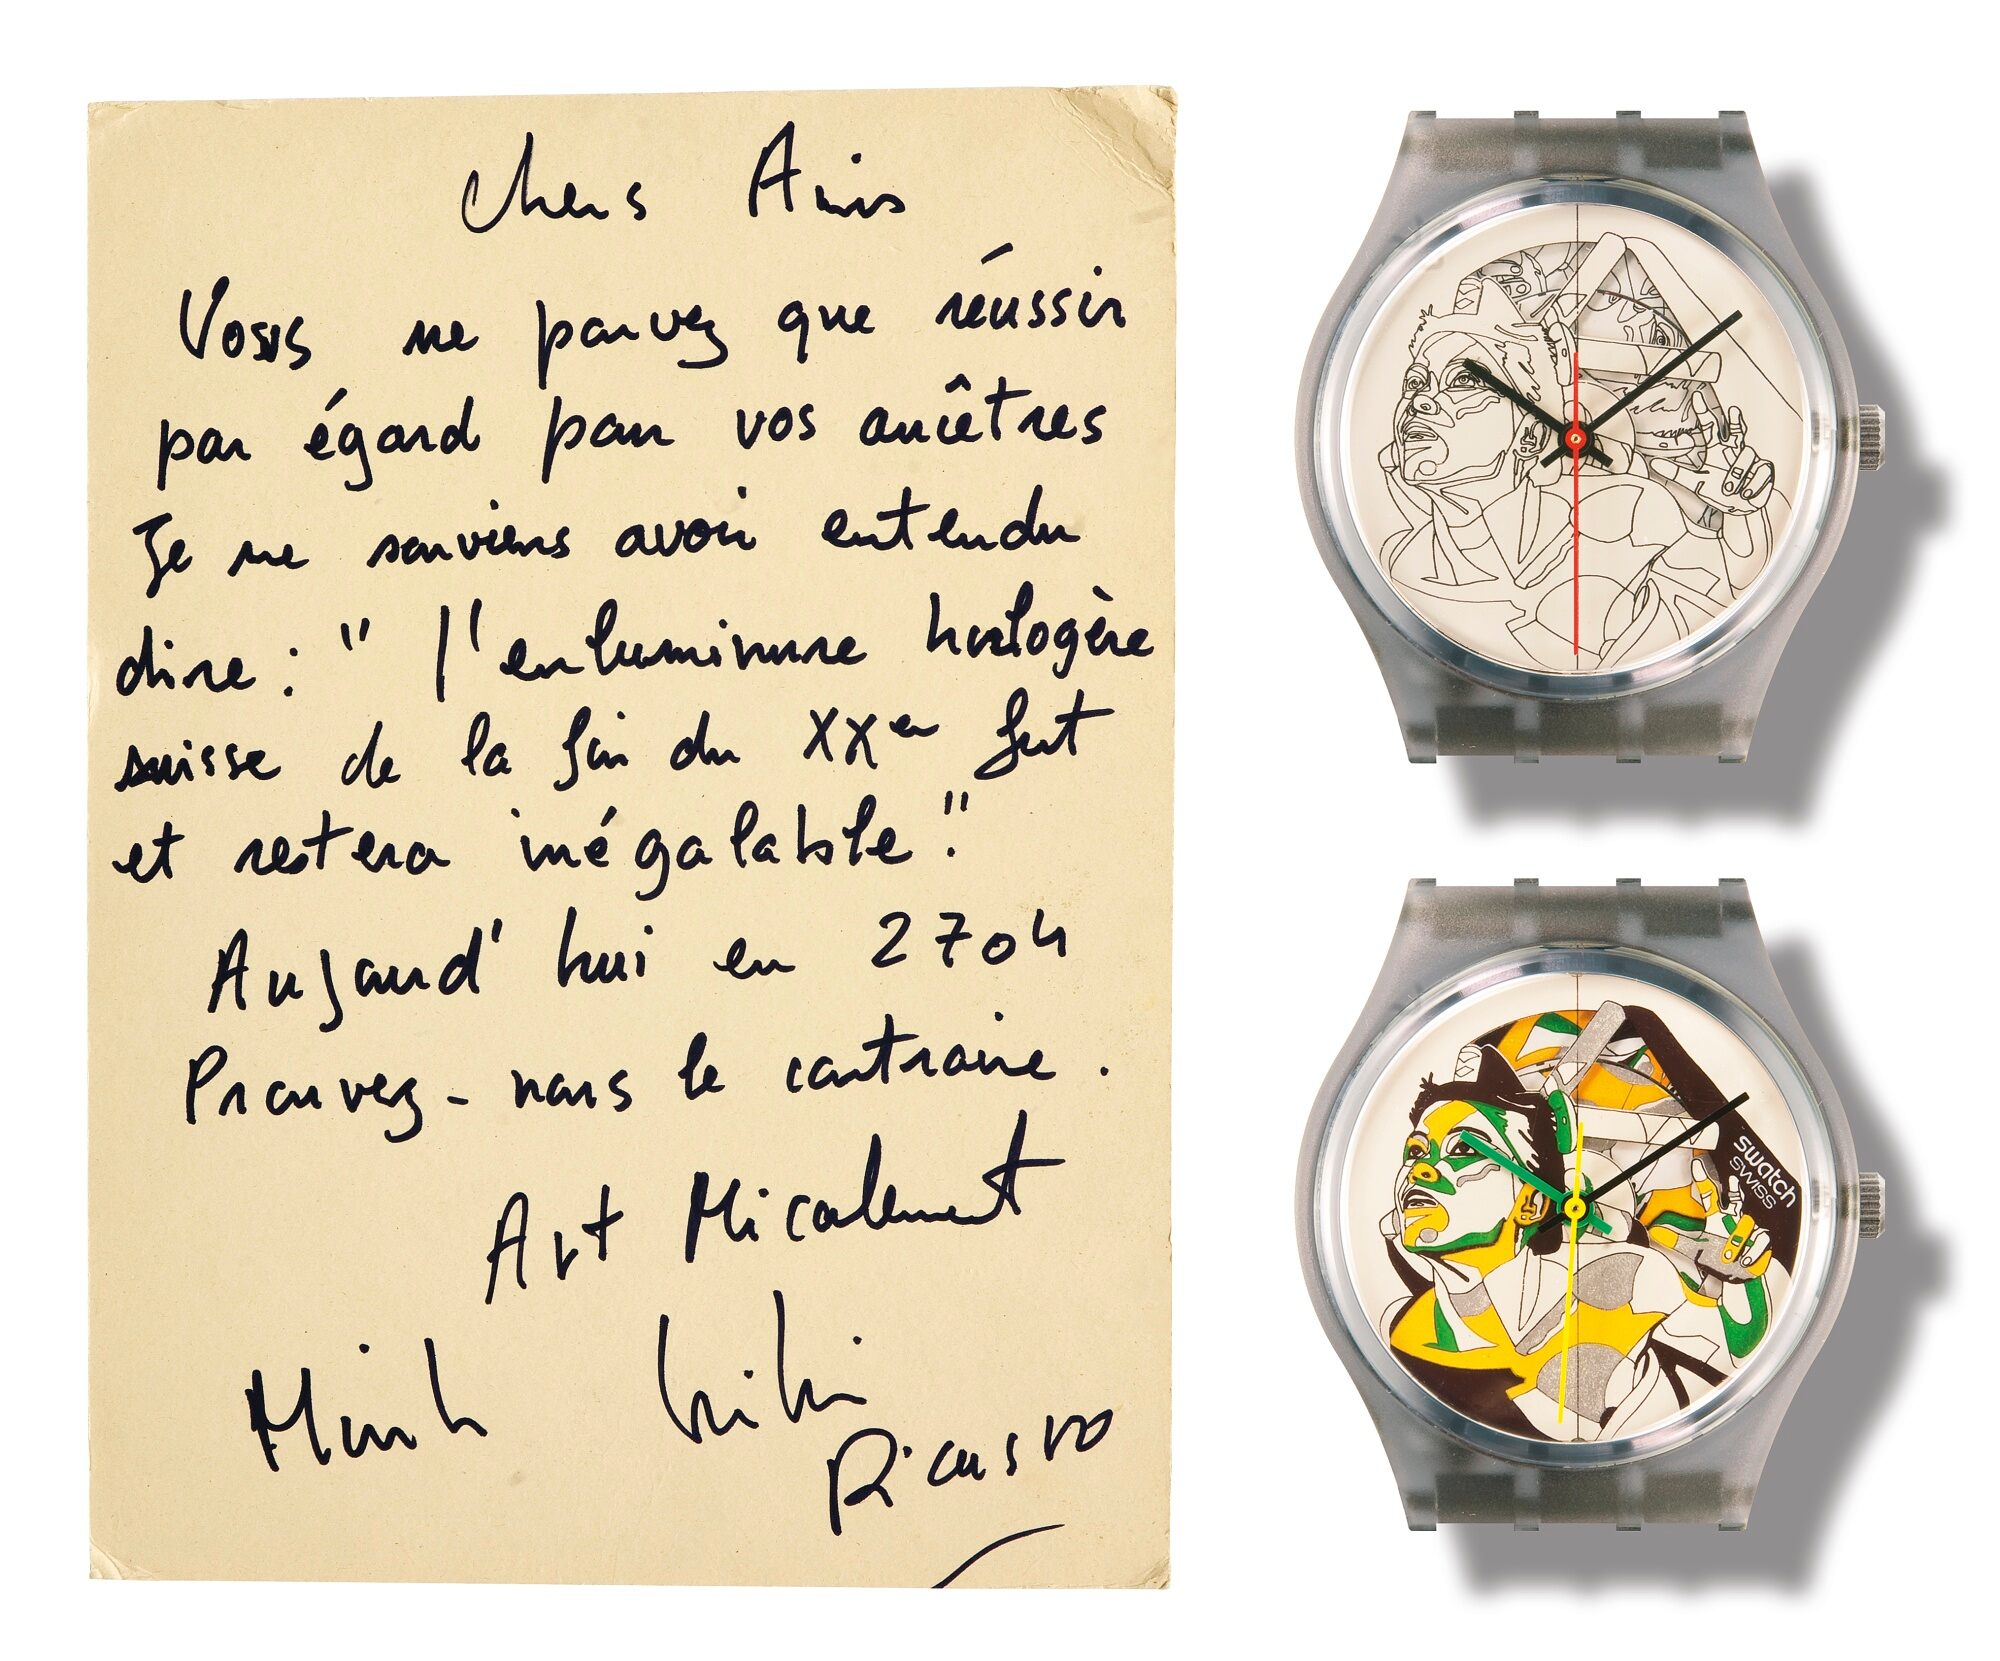 Chers Amis
Vous ne pouvez que réussir
par égard pour vos ancêtres
Je me souviens avoir entendu
dire : " l'enluminure horlogère
suisse de la fin du XXe fut
et restera inégalable."
Aujourd'hui en 2704
Prouvez-nous le contraire.
Art Micalement
Minh
Picasso
swatch
SWISS